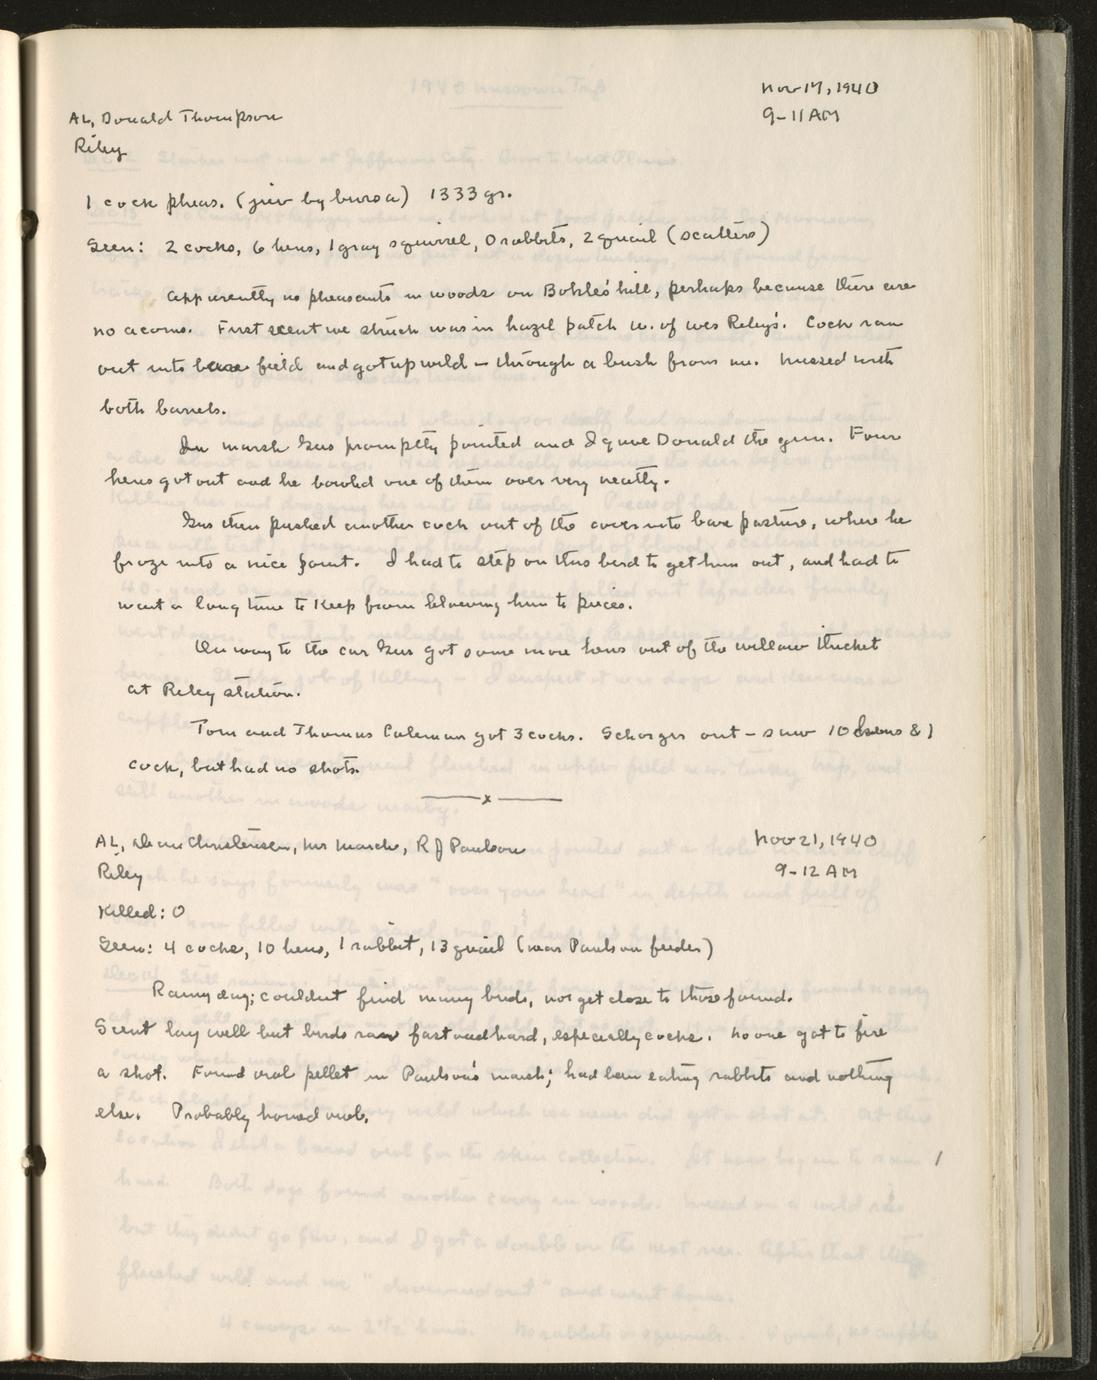 Nov 17, 1940
AL, Donald Thompson
9-11 AM
Riley
1 cock pheas. (juv by bursa) 1333 gr.
Seen: 2 cocks, 6 hens, 1 gray squirrel, 0 rabbits, 2 quail (scatters)
Apparently no pheasants in woods on Bohle's hill, perhaps because there are
no acorns. First scent we struck was in hazel patch w. of Wes Riley's. Cock ran
out into bare field and got up wild - through a bush from me. Missed with
both barrels.
In marsh Gus promptly pointed and I gave Donald the gun. Four
hens got out and he bowled one of them over very neatly.
Gus then pushed another cock out of the cover into bare pasture, where he
froze into a nice point. I had to step on this bird to get him out, and had to
wait a long time to keep from blowing him to pieces.
On way to the car Gus got some more hens out of the willow thicket
at Riley station.
Tom and Thomas Coleman got 3 cocks. Schorger out - saw 10 hens & 1
cock, but had no shots.
x
AL, Dean Christensen, Mr March, R J Paulson
Nov 21, 1940
Riley
9-12 AM
Killed: 0
Seen: 4 cocks, 10 hens, 1 rabbit, 13 quail (near Paulson feeder)
Rainy day; couldn't find many birds, nor get close to those found.
Scent lay well but birds ran fast and hard, especially cocks. No one got to fire
a shot. Found owl pellet in Paulson's marsh; had been eating rabbits and nothing
else. Probably horned owl.